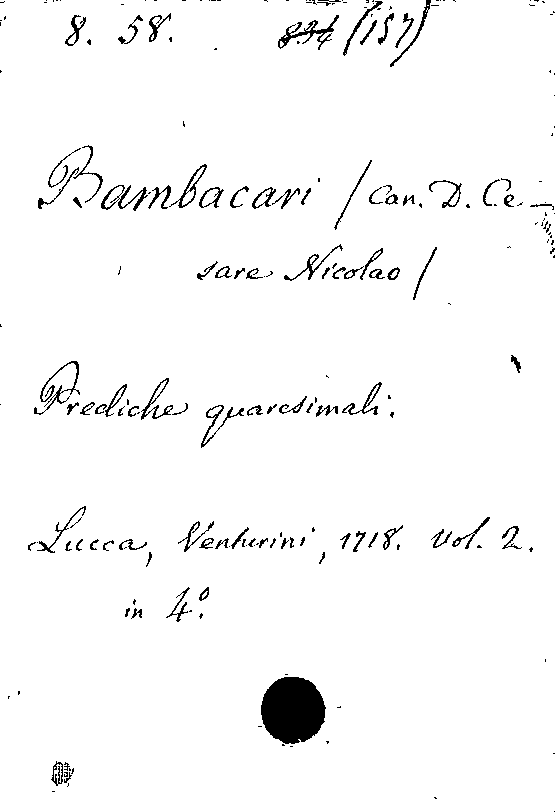 8. 58. 834 (157)
Bambacari / Can. D. Ce-
sare Nicolao /
Prediche quaresimali.
Lucca, Venturini, 1718. Vol. 2.
in 4.º